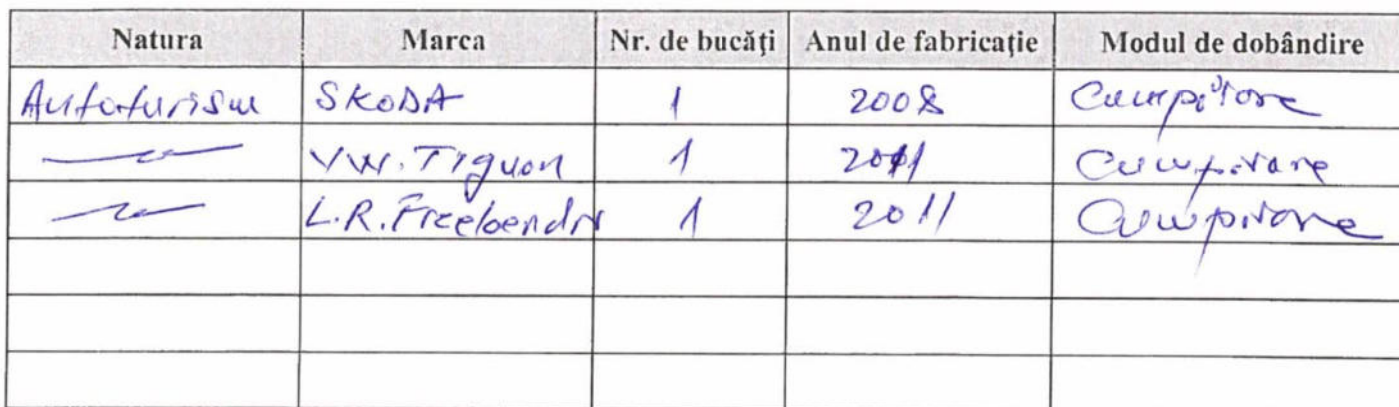 Natura Marca Nr. de bucăți Anul de fabricație Modul de dobândire
Autoturism SKODA 1 2008 Cumpărare
VW. Tiguan 1 2011 Cumpărare
L.R. Freelander 1 2011 Cumpărare